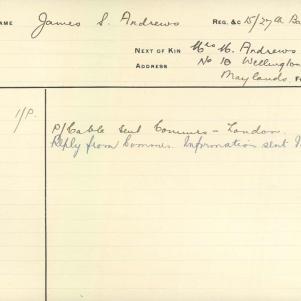 NAME James S. Andrews REG. &C 15/27th Ba
NEXT OF KIN Mrs M. Andrews
ADDRESS No 10 Wellington
Maylands,
1/P.
P/Cable sent Commrs - London.
Reply from Commrs. Information sent